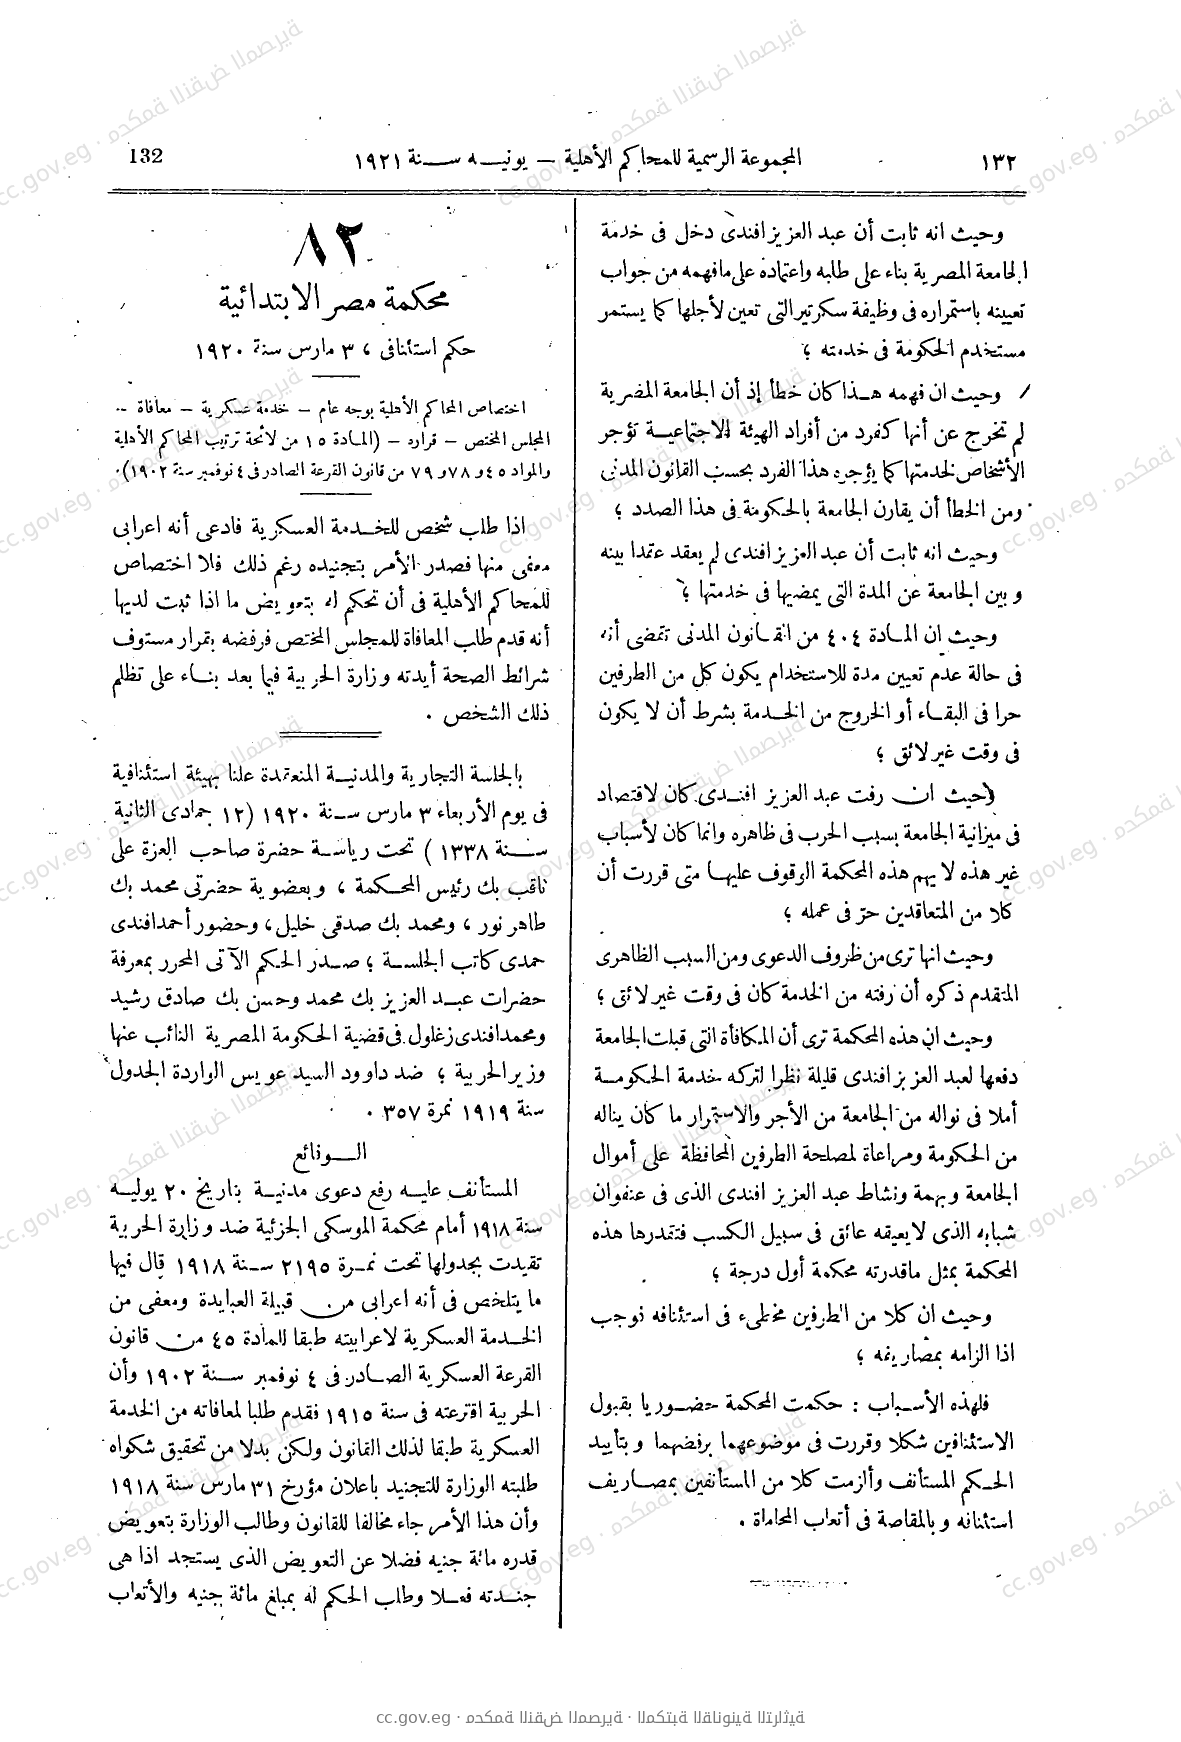 ١٣٢
المجموعة الرسمية للمحاكم الأهلية – يونيه سنة ١٩٢١
132
وحيث انه ثابت أن عبد العزيز افندى دخل فى خدمة
الجامعة المصرية بناء على طلبه واعتماده على مافهمه من جواب
تعيينه باستمراره فى وظيفة سكرتير التى تعين لأجلها كما يستمر
مستخدم الحكومة فى خدمته ؛
وحيث ان فهمه هذا كان خطأ إذ أن الجامعة المصرية
لم تخرج عن أنها كفرد من أفراد الهيئة الاجتماعية تؤجر
الأشخاص لخدمتها كما يؤجره هذا الفرد بحسب القانون المدنى
ومن الخطأ أن يقارن الجامعة بالحكومة فى هذا الصدد ؛
وحيث انه ثابت أن عبد العزيز افندى لم يعقد عقدا بينه
وبين الجامعة عن المدة التى يمضيها فى خدمتها ؛
وحيث ان المادة ٤٠٤ من القانون المدنى تقضى أنه
فى حالة عدم تعيين مدة للاستخدام يكون كل من الطرفين
حرا فى البقاء أو الخروج من الخدمة بشرط أن لا يكون
فى وقت غير لائق ؛
وحيث ان رفت عبد العزيز افندى كان لاقتصاد
فى ميزانية الجامعة بسبب الحرب فى ظاهره وانما كان لأسباب
غير هذه لا يهم هذه المحكمة الوقوف عليها متى قررت أن
كلا من المتعاقدين حرّ فى عمله ؛
وحيث انها ترى من ظروف الدعوى ومن السبب الظاهرى
المتقدم ذكره أن رفته من الخدمة كان فى وقت غير لائق ؛
وحيث ان هذه المحكمة ترى أن المكافأة التى قبلت الجامعة
دفعها لعبد العزيز افندى قليلة نظرا لتركه خدمة الحكومة
أملا فى نواله من الجامعة من الأجر والاستمرار ما كان يناله
من الحكومة ومراعاة لمصلحة الطرفين المحافظة على أموال
الجامعة وبهمة ونشاط عبد العزيز افندى الذى فى عنفوان
شبابه الذى لا يعيقه عائق فى سبيل الكسب فتقدرها هذه
المحكمة بمثل ماقدرته محكمة أول درجة ؛
وحيث ان كلا من الطرفين مخطىء فى استئنافه فوجب
اذا الزامه بمصاريفه ؛
فلهذه الأسباب : حكمت المحكمة حضوريا بقبول
الاستئنافين شكلا وقررت فى موضوعهما برفضهما وبتأييد
الحكم المستأنف وألزمت كلا من المستأنفين بمصاريف
استئنافه وبالمقاصة فى أتعاب المحاماة .
٨٢
محكمة مصر الابتدائية
حكم استئنافى ، ٣ مارس سنة ١٩٢٠
اختصاص المحاكم الأهلية بوجه عام – خدمة عسكرية – معافاة –
المجلس المختص – قراره – (المادة ١٥ من لائحة ترتيب المحاكم الأهلية
والمواد ٤٥ و٧٨ و٧٩ من قانون القرعة الصادر فى ٤ نوفمبر سنة ١٩٠٢).
اذا طلب شخص للخدمة العسكرية فادعى أنه اعرابى
معفى منها فصدر الأمر بتجنيده رغم ذلك فلا اختصاص
للمحاكم الأهلية فى أن تحكم له بتعويض ما اذا ثبت لديها
أنه قدم طلب المعافاة للمجلس المختص فرفضه بقرار مستوف
شرائط الصحة أيدته وزارة الحربية فيما بعد بناء على تظلم
ذلك الشخص .
بالجلسة التجارية والمدنية المنعقدة علنا بهيئة استئنافية
فى يوم الأربعاء ٣ مارس سنة ١٩٢٠ (١٢ جمادى الثانية
سنة ١٣٣٨ ) تحت رياسة حضرة صاحب العزة على
ثاقب بك رئيس المحكمة ، وبعضوية حضرتى محمد بك
طاهر نور ، ومحمد بك صدقى خليل ، وحضور أحمد افندى
حمدى كاتب الجلسة ؛ صدر الحكم الآتى المحرر بمعرفة
حضرات عبد العزيز بك محمد وحسن بك صادق رشيد
ومحمد افندى زغلول فى قضية الحكومة المصرية النائب عنها
وزير الحربية ؛ ضد داوود السيد عويس الواردة الجدول
سنة ١٩١٩ نمرة ٣٥٧ .
الوقائع
المستأنف عليه رفع دعوى مدنية بتاريخ ٢٠ يوليه
سنة ١٩١٨ أمام محكمة الموسكى الجزئية ضد وزارة الحربية
تقيدت بجدولها تحت نمرة ٢١٩٥ سنة ١٩١٨ قال فيها
ما يتلخص فى أنه اعرابى من قبيلة العبايدة ومعفى من
الخدمة العسكرية لاعرابيته طبقا للمادة ٤٥ من قانون
القرعة العسكرية الصادر فى ٤ نوفمبر سنة ١٩٠٢ وأن
الحربية اقترعته فى سنة ١٩١٥ فقدم طلبا لمعافاته من الخدمة
العسكرية طبقا لذلك القانون ولكن بدلا من تحقيق شكواه
طلبته الوزارة للتجنيد باعلان مؤرخ ٣١ مارس سنة ١٩١٨
وأن هذا الأمر جاء مخالفا للقانون وطالب الوزارة بتعويض
قدره مائة جنيه فضلا عن التعويض الذى يستجد اذا هى
جندته فعلا وطلب الحكم له بمبلغ مائة جنيه والأتعاب
cc.gov.eg · محكمة النقض المصرية · المكتبة القانونية التراثية